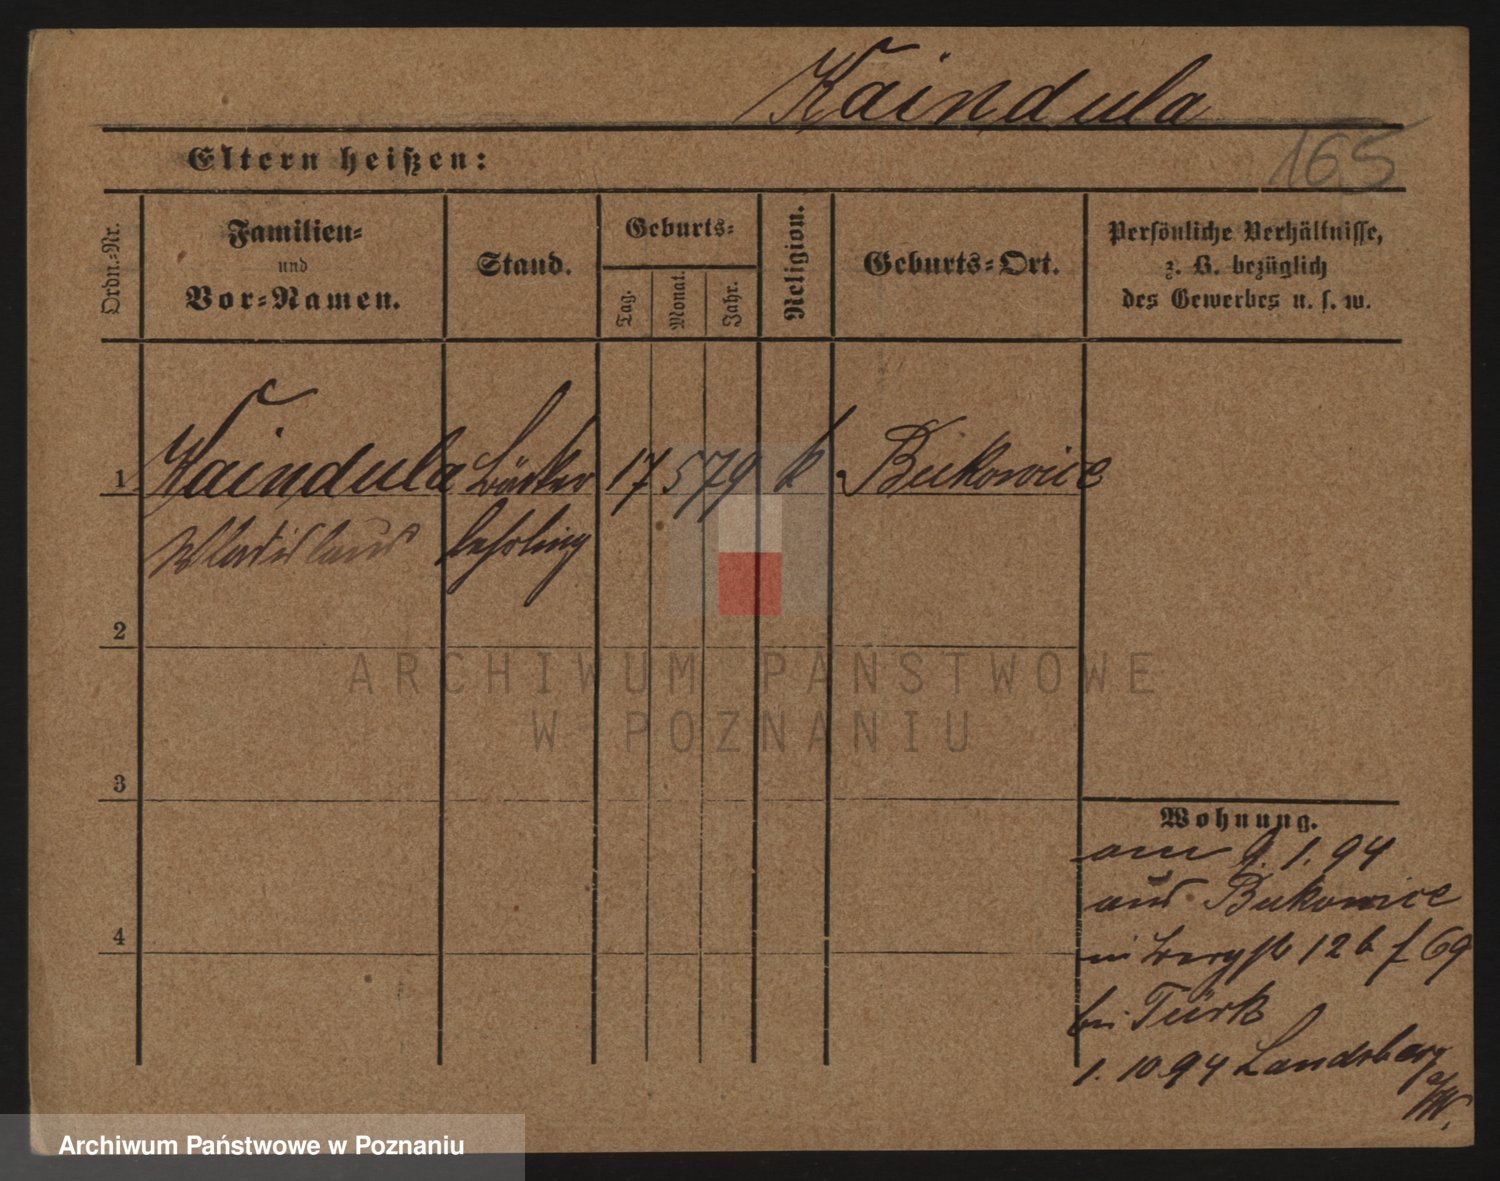 Kaindula
165
Eltern heißen:
Ordn.-Nr.
Familien- und Vor-Namen.
Stand.
Geburts-
Tag.
Monat.
Jahr.
Religion.
Geburts-Ort.
Persönliche Verhältnisse,
z. B. bezüglich
des Gewerbes u. s. w.
1 Kaindula Bäcker 17 5 79 k Bukowice
Wladislaus lehrling
2
ARCHIWUM PAŃSTWOWE
W POZNANIU
3
Wohnung.
am 9. 1. 94
aus Bukowice
4
in Bergstr 12 b f 69
bei Türk
1. 10 94 Landsberg
a/W.
Archiwum Państwowe w Poznaniu